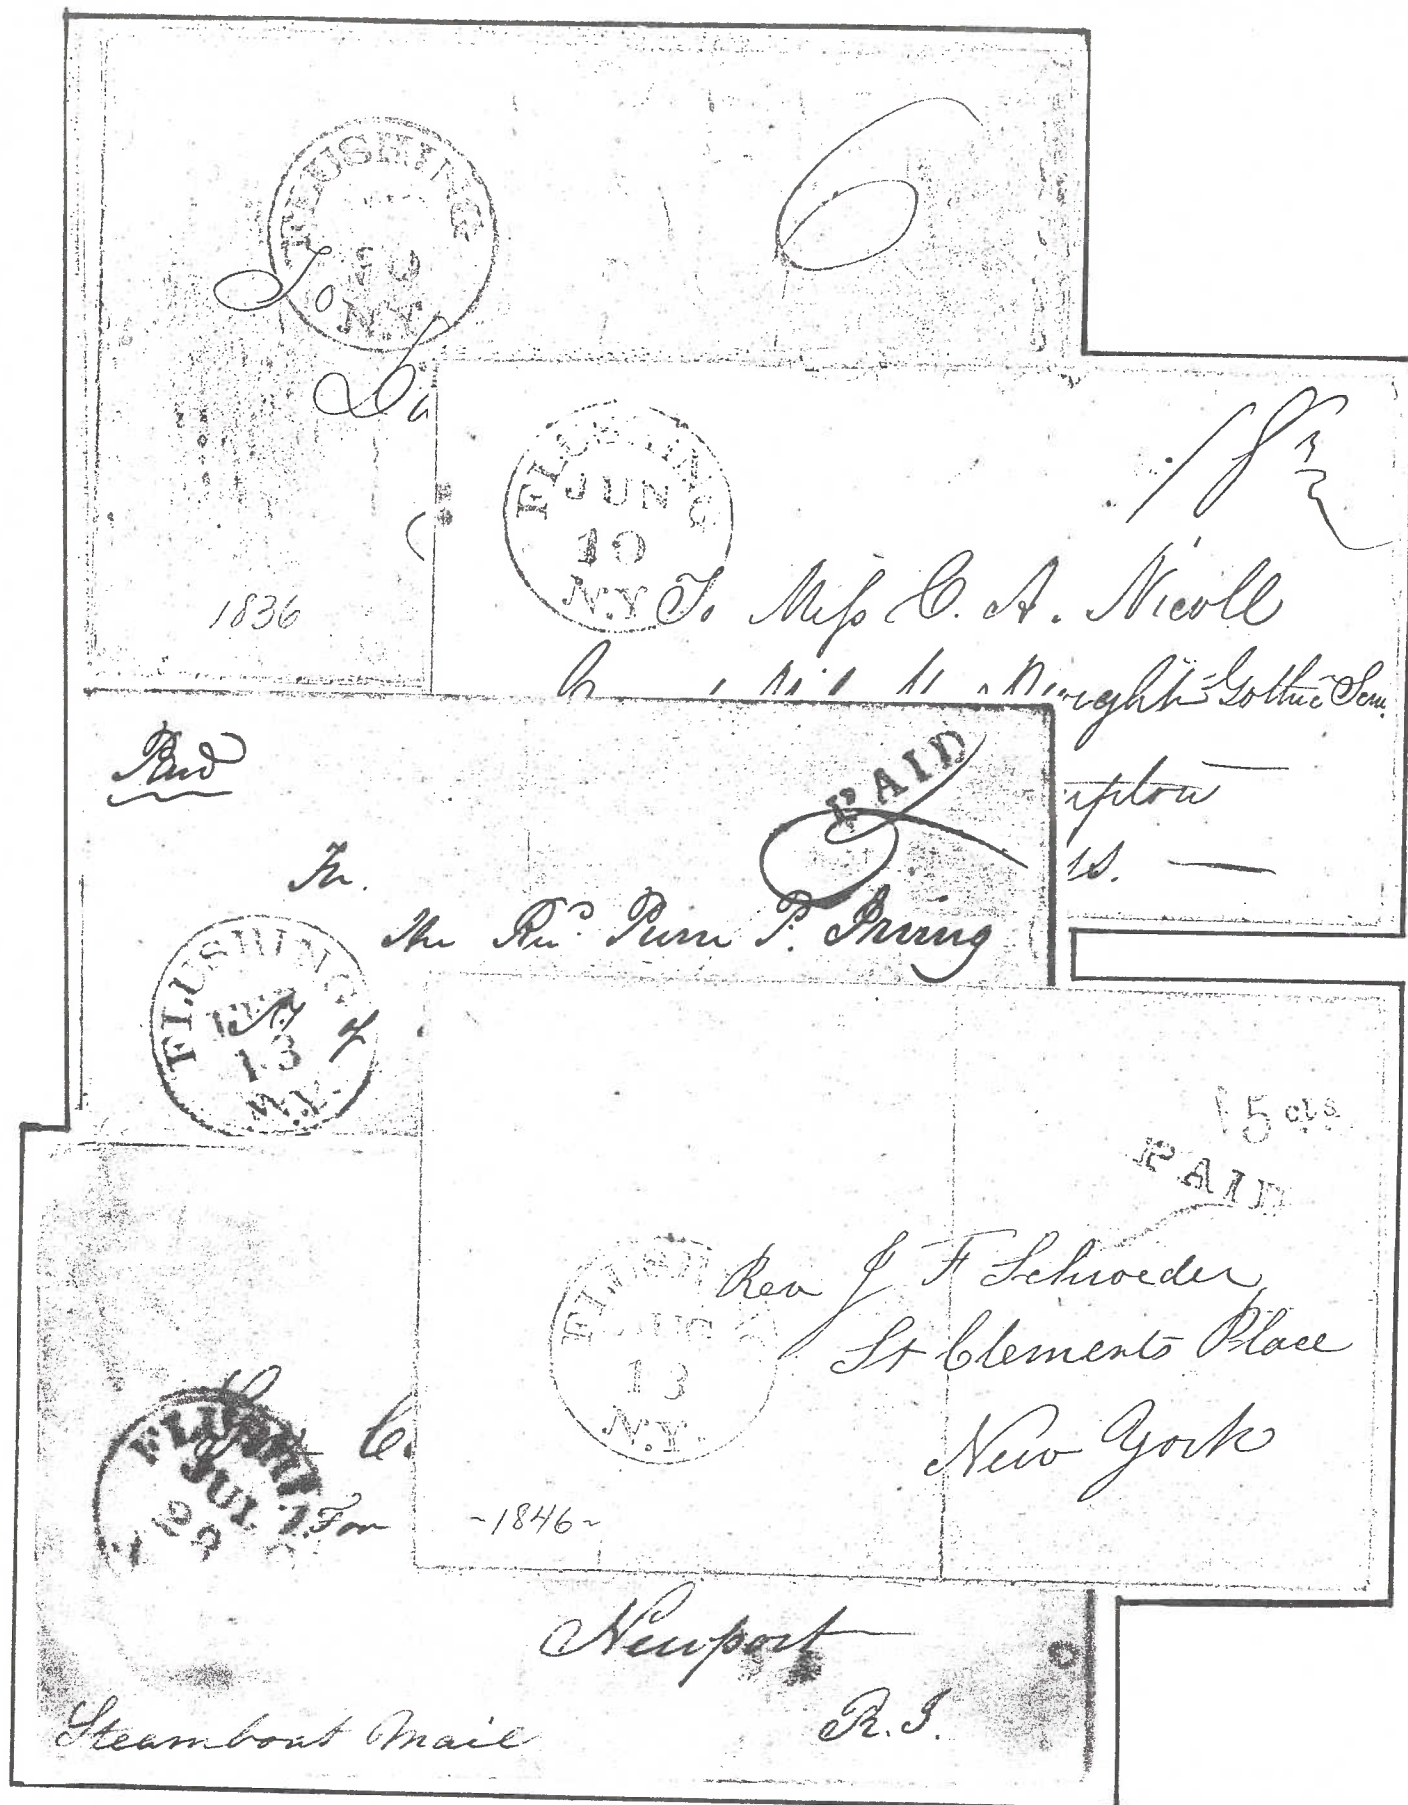 FLUSHING
N.Y.
6
To
1836
FLUSHING
JUN
10
N.Y.
18¾
To Miss C. A. Nicoll
Gothic Sem.
Paid
PAID
6
For.
The Revd. Pierre P. Irving
FLUSHING
13
N.Y.
5 cts
PAID
FLUSHING
AUG
13
N.Y.
Rev J F Schroeder
St Clements Place
New York
~1846~
FLUSHI
JUL
29
For
Newport
R.I.
Steamboat Mail